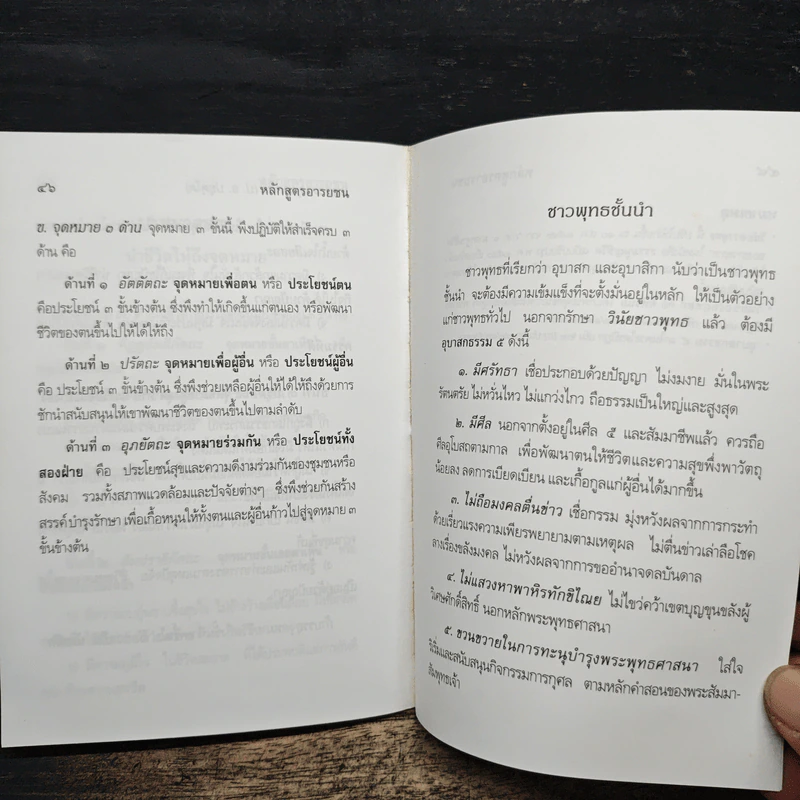 ๔๖
หลักสูตรอารยชน
ข. จุดหมาย ๓ ด้าน จุดหมาย ๓ ขั้นนี้ พึงปฏิบัติให้สำเร็จครบ ๓
ด้าน คือ
ด้านที่ ๑ อัตตัตถะ จุดหมายเพื่อตน หรือ ประโยชน์ตน
คือประโยชน์ ๓ ขั้นข้างต้น ซึ่งพึงทำให้เกิดขึ้นแก่ตนเอง หรือพัฒนา
ชีวิตของตนขึ้นไปให้ได้ให้ถึง
ด้านที่ ๒ ปรัตถะ จุดหมายเพื่อผู้อื่น หรือ ประโยชน์ผู้อื่น
คือ ประโยชน์ ๓ ขั้นข้างต้น ซึ่งพึงช่วยเหลือผู้อื่นให้ได้ให้ถึงด้วยการ
ชักนำสนับสนุนให้เขาพัฒนาชีวิตของตนขึ้นไปตามลำดับ
ด้านที่ ๓ อุภยัตถะ จุดหมายร่วมกัน หรือ ประโยชน์ทั้ง
สองฝ่าย คือ ประโยชน์สุขและความดีงามร่วมกันของชุมชนหรือ
สังคม รวมทั้งสภาพแวดล้อมและปัจจัยต่างๆ ซึ่งพึงช่วยกันสร้าง
สรรค์ บำรุงรักษา เพื่อเกื้อหนุนให้ทั้งตนและผู้อื่นก้าวไปสู่จุดหมาย ๓
ขั้นข้างต้น
ชาวพุทธชั้นนำ
ชาวพุทธที่เรียกว่า อุบาสก และอุบาสิกา นับว่าเป็นชาวพุทธ
ชั้นนำ จะต้องมีความเข้มแข็งที่จะตั้งมั่นอยู่ในหลัก ให้เป็นตัวอย่าง
แก่ชาวพุทธทั่วไป นอกจากรักษา วินัยชาวพุทธ แล้ว ต้องมี
อุบาสกธรรม ๕ ดังนี้
๑. มีศรัทธา เชื่อประกอบด้วยปัญญา ไม่งมงาย มั่นในพระ
รัตนตรัย ไม่หวั่นไหว ไม่แกว่งไกว ถือธรรมเป็นใหญ่และสูงสุด
๒. มีศีล นอกจากตั้งอยู่ในศีล ๕ และสัมมาชีพแล้ว ควรถือ
ศีลอุโบสถตามกาล เพื่อพัฒนาตนให้ชีวิตและความสุขพึ่งพาวัตถุ
น้อยลง ลดการเบียดเบียน และเกื้อกูลแก่ผู้อื่นได้มากขึ้น
๓. ไม่ถือมงคลตื่นข่าว เชื่อกรรม มุ่งหวังผลจากการกระทำ
ด้วยเรี่ยวแรงความเพียรพยายามตามเหตุผล ไม่ตื่นข่าวเล่าลือโชค
ลางเรื่องขลังมงคล ไม่หวังผลจากการขออำนาจดลบันดาล
๔. ไม่แสวงหาพาหิรทักขิไณย ไม่ไขว่คว้าเขตบุญขุนขลังผู้
วิเศษศักดิ์สิทธิ์ นอกหลักพระพุทธศาสนา
๕. ขวนขวายในการทะนุบำรุงพระพุทธศาสนา ใส่ใจ
ริเริ่มและสนับสนุนกิจกรรมการกุศล ตามหลักคำสอนของพระสัมมา-
สัมพุทธเจ้า